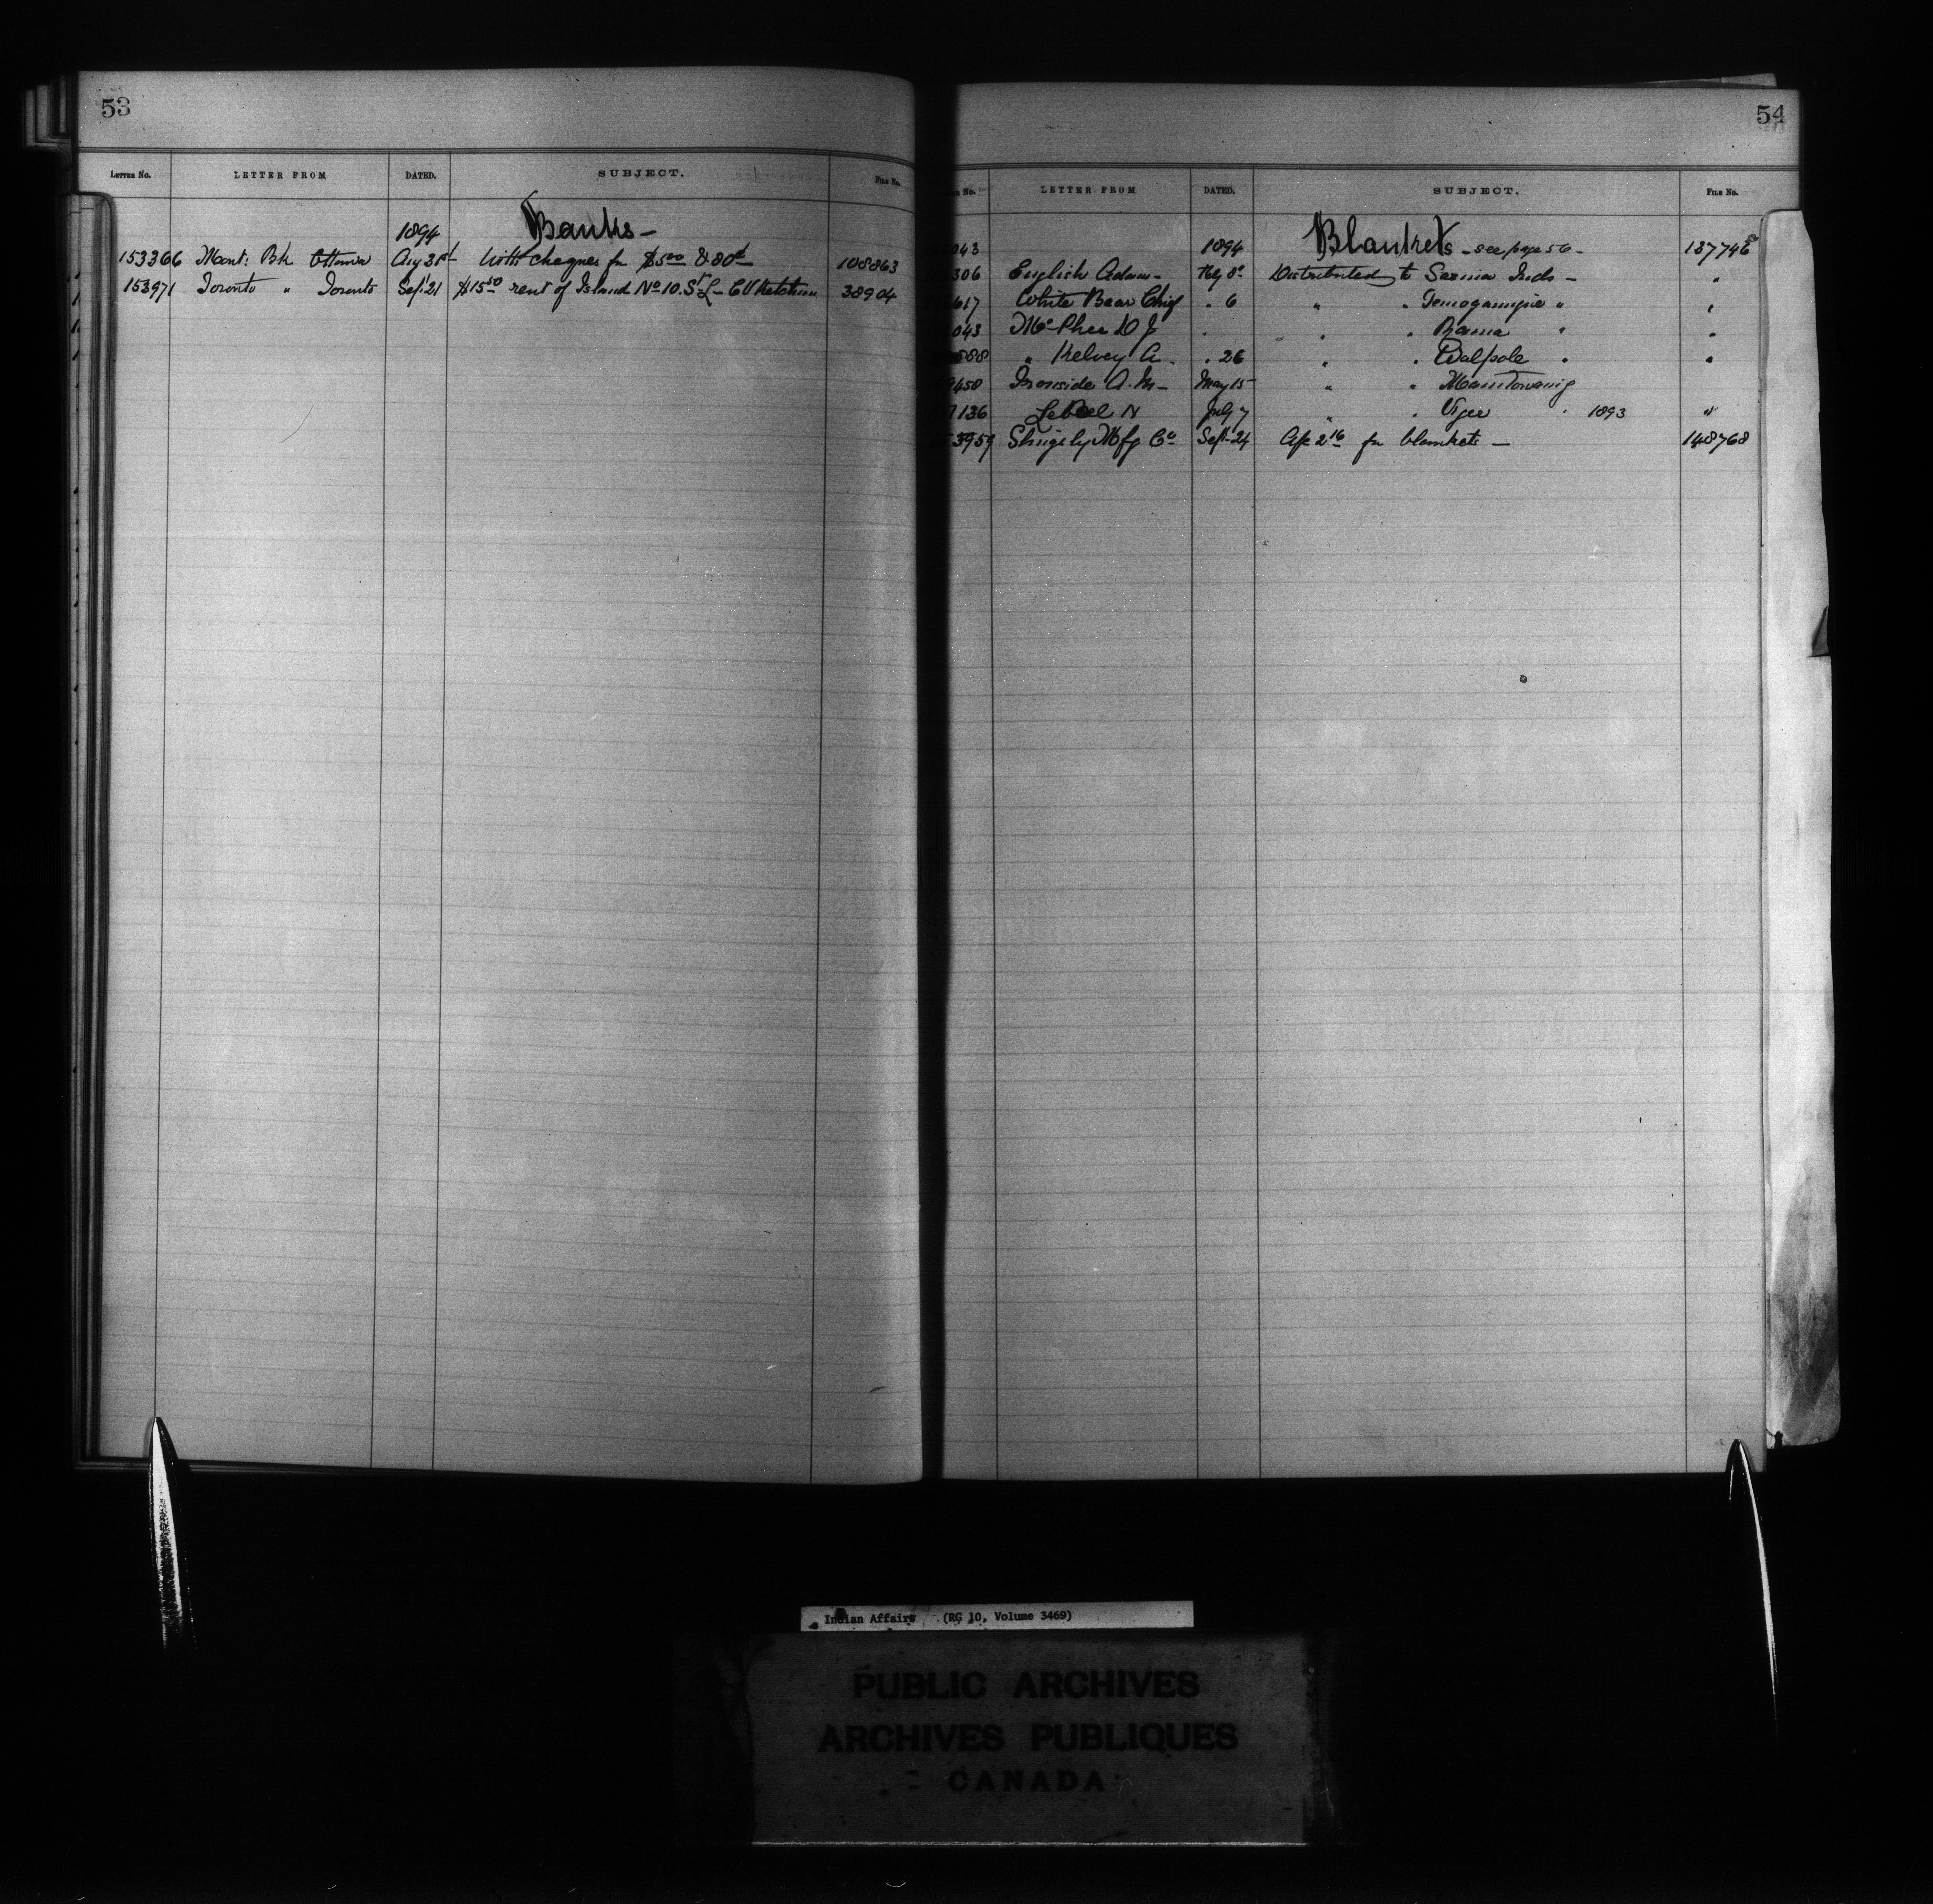 53
LETTER No. LETTER FROM DATED. SUBJECT. FILE No.
Banks -
1894
153366 Mont: Bk Ottawa Aug 31st With cheques for $5.00 & 80c 108863
153971 Toronto " Toronto Sept 21 $15.50 rent of Island No 10. St L - C V Ketchum 38904
54
No. LETTER FROM DATED. SUBJECT. FILE No.
043 1894 Blankets - see page 56 - 137746
306 English Adam - Feby 8 Distributed to Sarnia Inds - "
617 White Bear Chief " 6 " " Temogamingue " "
043 McPhee D J " " " Rama " "
888 " Kelvey A. " 26 " " Walpole " "
9450 Ironside A. M - May 15 " " Manitowaning
136 LeBel N July 7 " " Viger " 1893 "
53959 Slingsby Mfg Co Sept 24 A/c for blankets - 148768
Indian Affairs (RG 10, Volume 3469)
PUBLIC ARCHIVES
ARCHIVES PUBLIQUES
CANADA